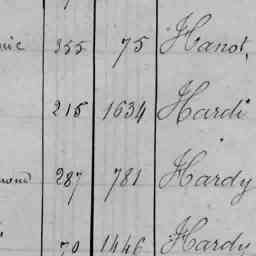 355 75 Hanot,
215 1634 Hardi
287 781 Hardy
70 1446 Hardy